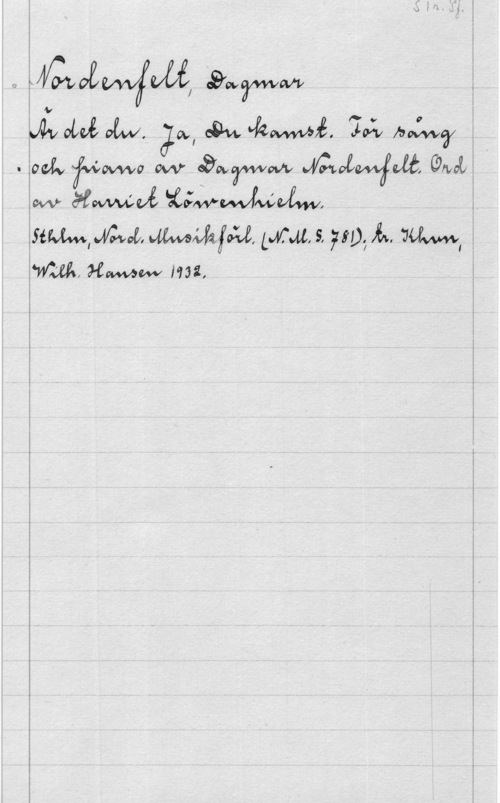 S 1 r. Sf.
Nordenfelt, Dagmar
Är det du. Ja, Du kamst. För sång
och piano av Dagmar Nordenfelt. Ord
av Harriet Löwenhielm.
Sthlm, Nord. Musikförl. (N.M.S. 781); tr. Khvn,
Wilh. Hansen 1932.